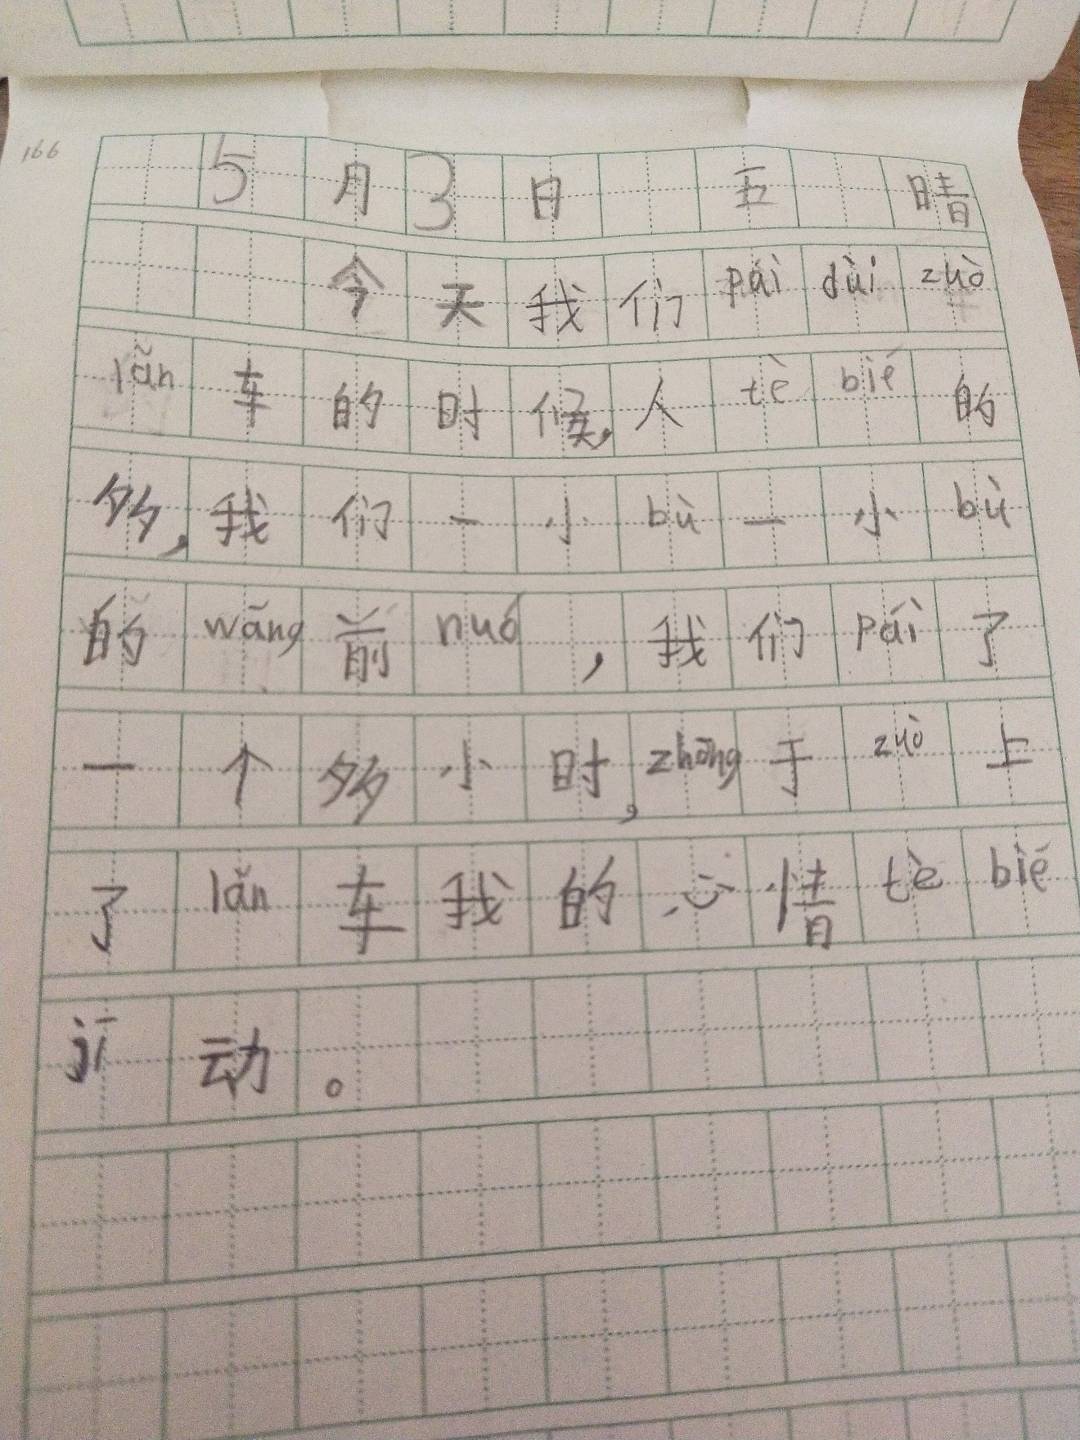 166
5月3日 五 晴
今天我们pái duì zuò
lǎn车的时候,人tè bié的
多,我们一小bù一小bù
的wǎng前nuó,我们pái了
一个多小时,zhōng于zuò上
了lǎn车我的心情tè bié
jī动。